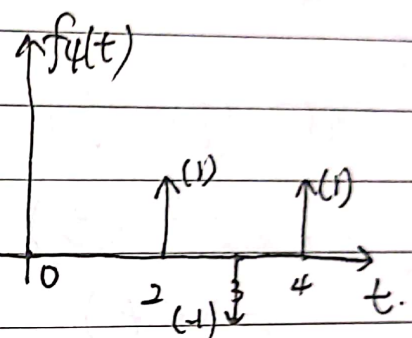 f4(t)
(1) (1)
0 2 3 4 t.
(-1)